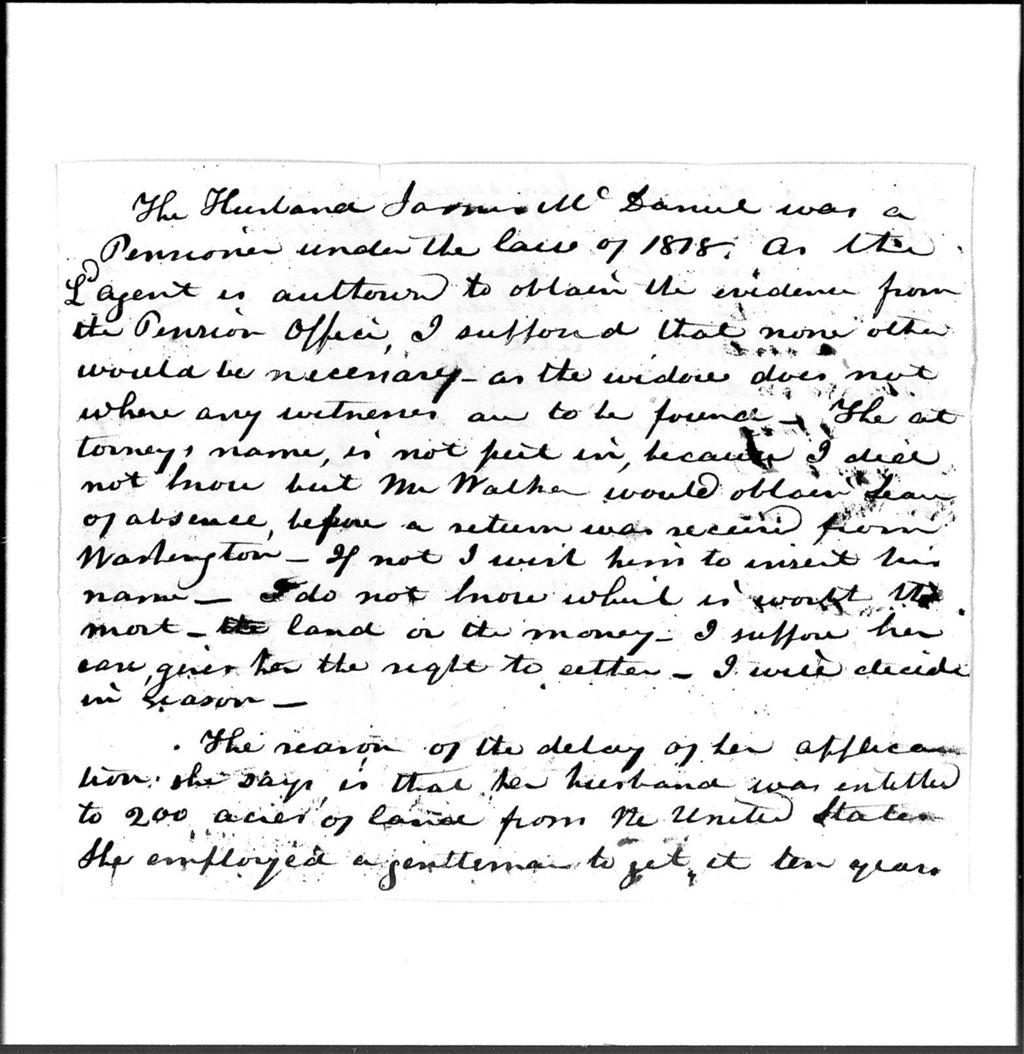 The Husband James Mc Daniel was a
Pensioner under the law of 1818. As the
Ld agent is authorised to obtain the evidence from
the Pension Office, I supposed that none other
would be necessary - as the widow does not
where any witnesses are to be found - The at
torneys name, is not put in, because I did
not know but Mr Walker would obtain leave
of absence, before a return was received from
Washington - If not I wish him to insert his
name - I do not know which is worth the
most - the land or the money - I suppose her
case, gives her the right to either - I will decide
in season -
The reason of the delay of her applica
tion. she says is that her husband was entitled
to 200 acres of land from the United States
She employed a gentleman to get it ten years